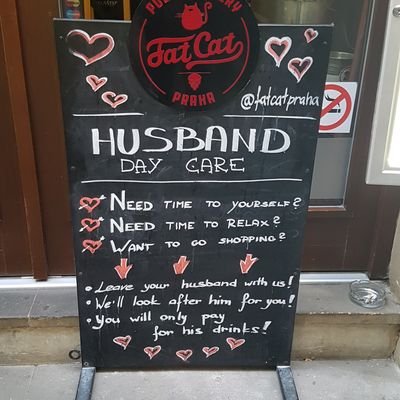 Fat Cat
PRAHA
@fatcatpraha
HUSBAND
DAY CARE
NEED TIME TO YOURSELF?
NEED TIME TO RELAX?
WANT TO GO SHOPPING?
• Leave your husband with us!
• We'll look after him for you!
• You will only pay
for his drinks!